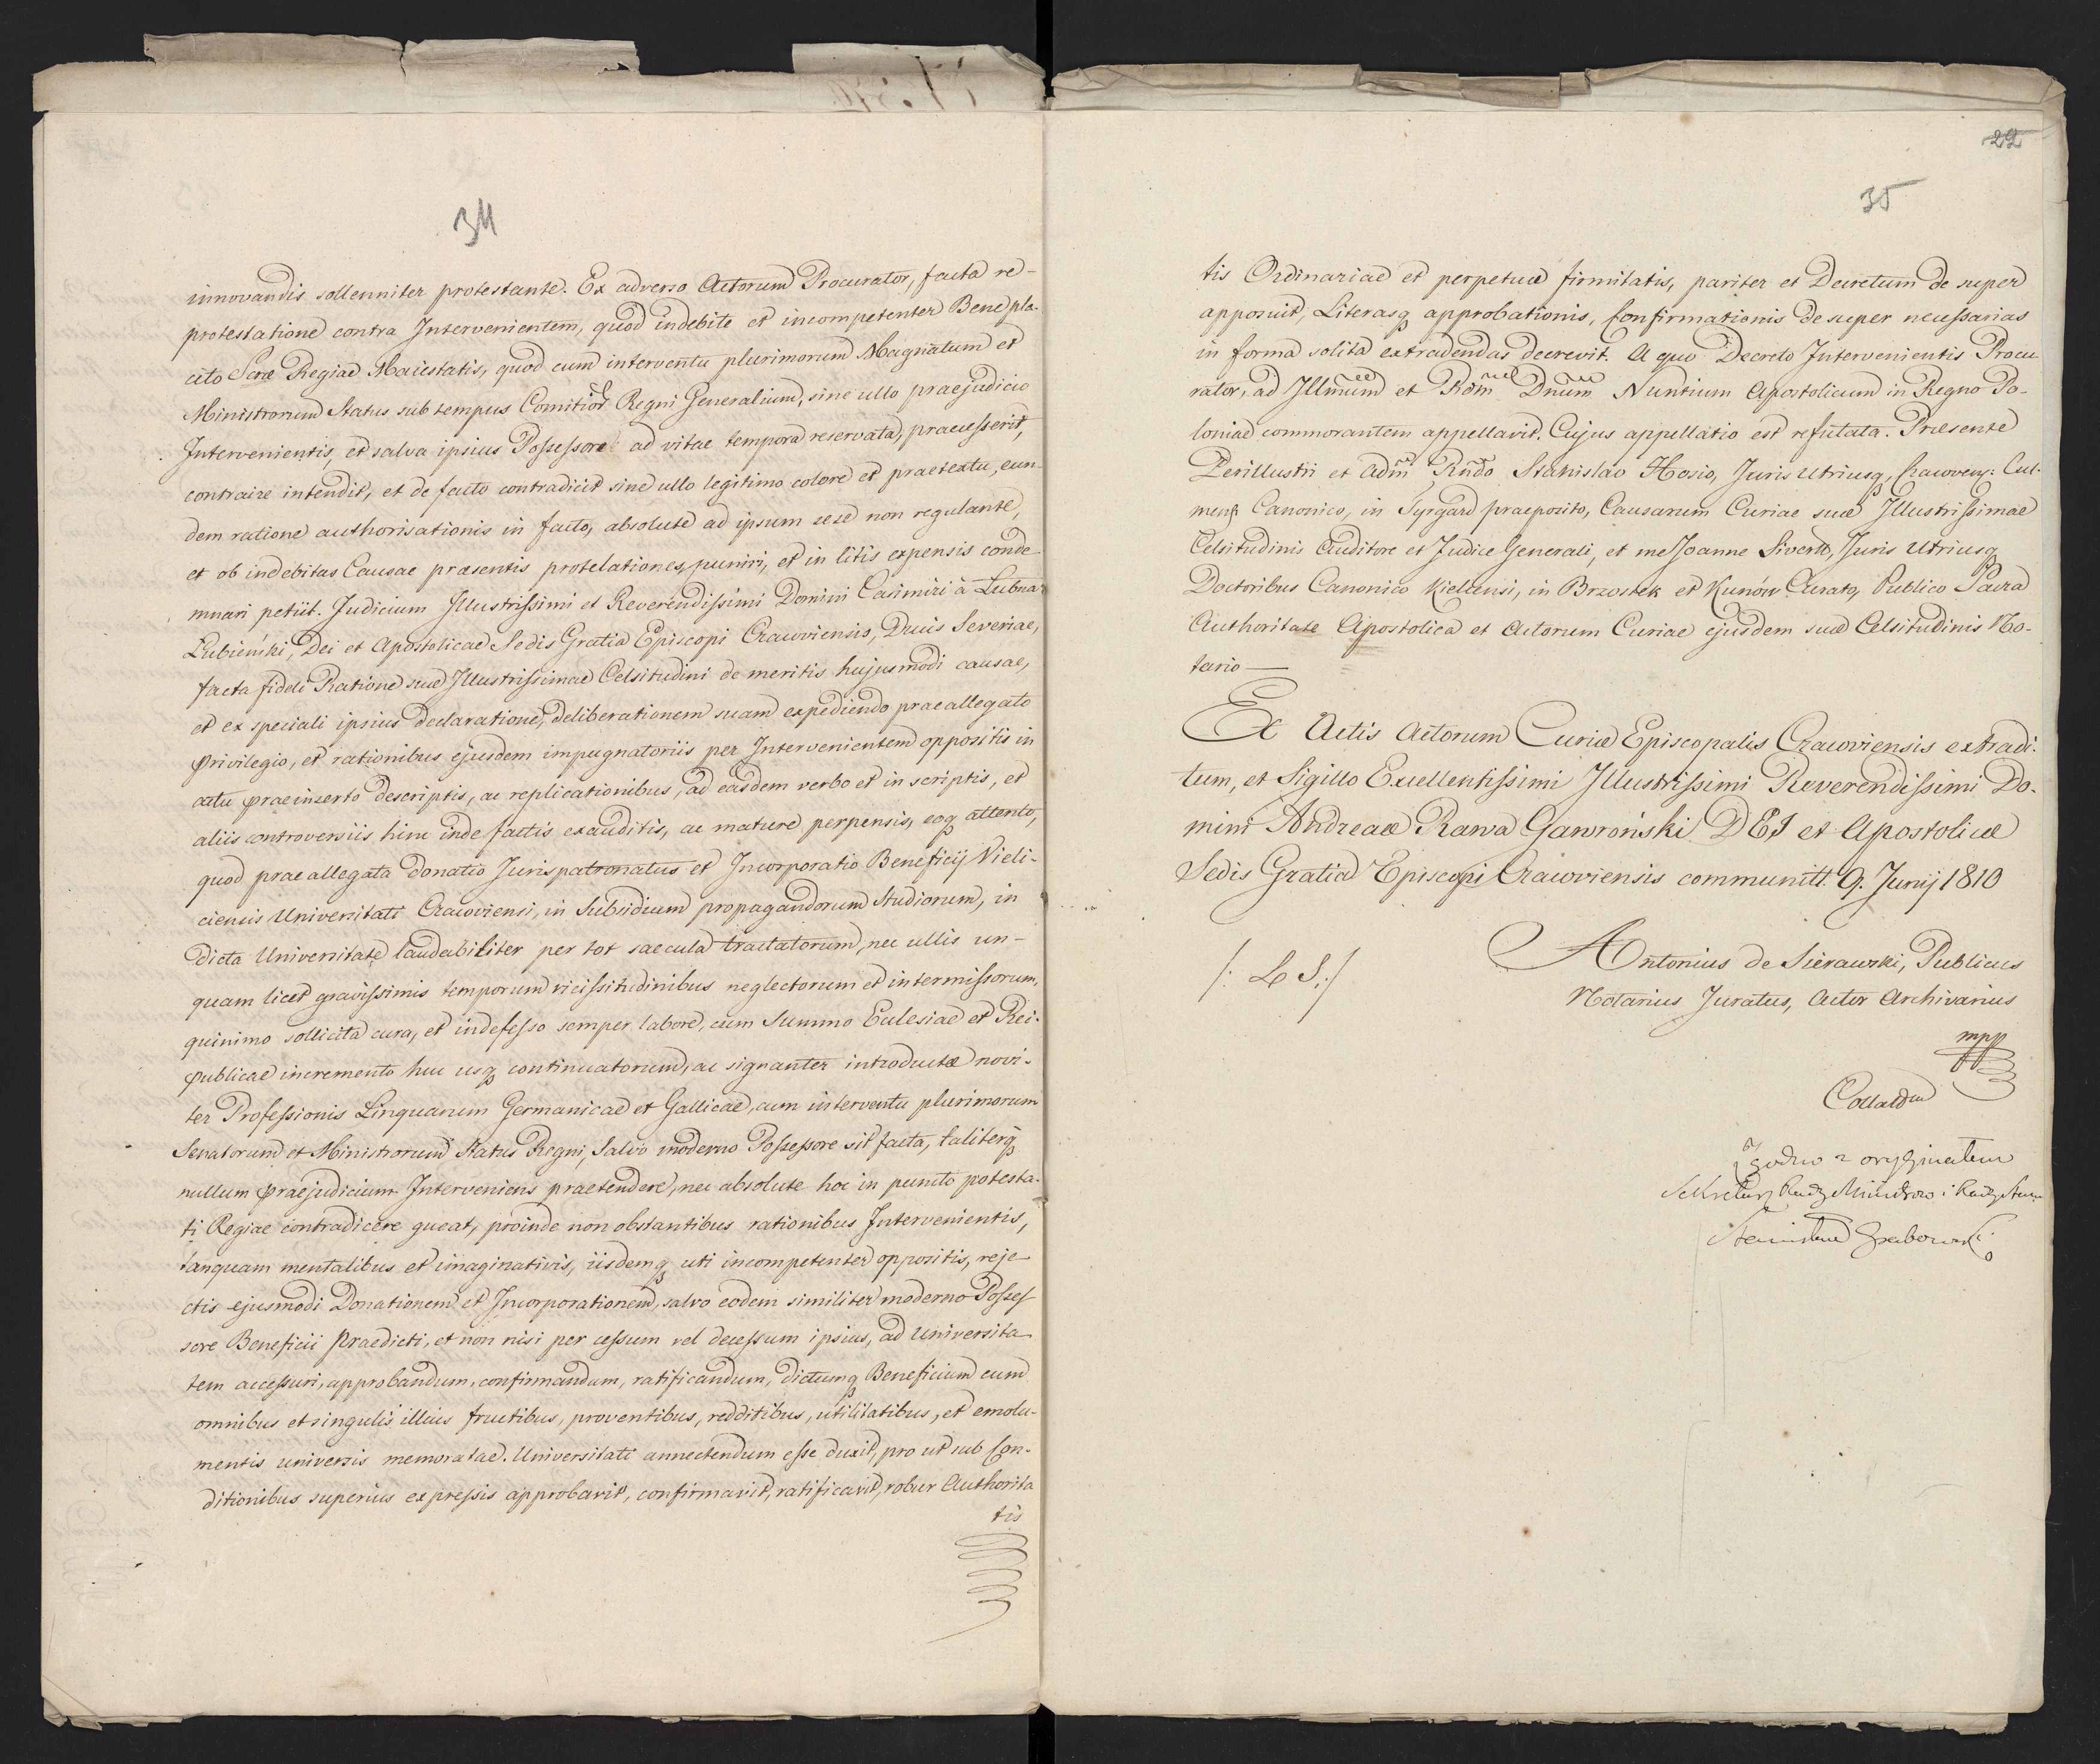 34
innovandis sollenniter protestante. Ex adverso Actorum Procurator, facta re-
protestatione contra Intervenientem, quod indebite et incompetenter Benepla-
cito Scrae Regiae Maiestatis, quod cum interventu plurimorum Magnatum et
Ministrorum Status sub tempus Comitior Regni Generalium, sine ullo praejudicio
Intervenientis, et salva ipsius Possessore ad vitae tempora reservata, praecesserit,
contraire intendit, et de facto contradicit sine ullo legitimo colore et praetextu, eun-
dem ratione authorisationis in facto, absolute ad ipsum sese non regulante,
et ob indebitas Causae praesentis protelationes, puniri, et in litis expensis conde-
mnari petiit. Judicium Illustrissimi et Reverendissimi Domini Casimiri à Lubna
Łubieński, Dei et Apostolicae Sedis Gratia Episcopi Cracoviensis, Ducis Severiae,
facta fideli Ratione suae Illustrissimae Celsitudini de meritis hujusmodi causae,
et ex speciali ipsius declaratione, deliberationem suam expediendo praeallegato
Privilegio, et rationibus ejusdem impugnatoriis per Intervenientem oppositis in
actu praeinserto descriptis, ac replicationibus, ad easdem verbo et in scriptis, et
aliis controversiis hinc inde factis exauditis, ac mature perpensis, eoq attento,
quod praeallegata donatio Jurispatronatus et Incorporatio Beneficij Vieli-
ciensis Universitati Cracoviensi, in Subsidium propagandorum Studiorum, in
dicta Universitate laudabiliter per tot saecula tractatorum, nec ullis un-
quam licet gravissimis temporum vicissitudinibus neglectorum et intermissorum,
quinimo sollicita cura, et indefesso semper labore, cum Summo Eclesiae et Rei-
publicae incremento huc usq continuatorum, ac signanter introductae novi-
ter Professionis Linguarum Germanicae et Gallicae, cum interventu plurimorum
Senatorum et Ministrorum Status Regni, Salvo moderno Possessore sit facta, taliterq
nullum praejudicium Interveniens praetendere, nec absolute hoc in puncto potesta-
ti Regiae contradicere queat, proinde non obstantibus rationibus Intervenientis,
tanquam mentalibus et imaginativis, iisdemq uti incompetenter oppositis, reje-
ctis ejusmodi Donationem et Incorporationem, salvo eodem similiter moderno Posses-
sore Beneficii praedicti, et non nisi per cessum vel decessum ipsius, ad Universita-
tem accessuri, approbandum, confirmandam, ratificandum, dictumq Beneficium cum
omnibus et singulis illius fructibus, proventibus, redditibus, utilitatibus, et emolu-
mentis universis memoratae Universitati annectendum esse duxit, pro ut sub Con-
ditionibus superius expressis approbavit, confirmavit, ratificavit, robur Authorita
tis
22
35
tis Ordinariae et perpetuae firmitatis, pariter et Decretum de super
apposuit, Literasq approbationis, Confirmationis desuper necessarias
in forma solita extradendas decrevit. A quo Decreto Intervenientis Procu-
rator, ad Illmum et Rdm Dnum Nuntium Apostolicum in Regno Po-
loniae commorantem appellavit. Cujus appellatio est refutata. Praesente
Perillustri et Adm Rndo Stanislao Hosio, Juris Utriusq, Cracovens: Cul-
mens Canonico, in Syrgard praeposito, Causarum Curiae suae Illustrissimae
Celsitudinis Auditore et Judice Generali, et me Joanne Siverth, Juris Utriusq
Doctoribus Canonico Kiellensi, in Brzostek et Kunów Curato, Publico Sacra
Authoritate Apostolica et Actorum Curiae ejusdem suae Celsitudinis No-
tario —
Ex Actis Actorum Curiae Episcopalis Cracoviensis extradi-
tum, et Sigillo Excellentissimi Illustrissimi Reverendissimi Do-
mini Andreae Rawa Gawroński DEI et Apostolicae
Sedis Gratia Episcopi Cracoviensis communitt. 9. Junij 1810
/: L S :/
Antonius de Sierawski, Publicus
Notarius Juratus, Actor Archivarius
mpp
Collatum
Zgodno z oryginałem
Sekretarz Rady Ministrow i Rady Stanu
Stanisław Grabowski